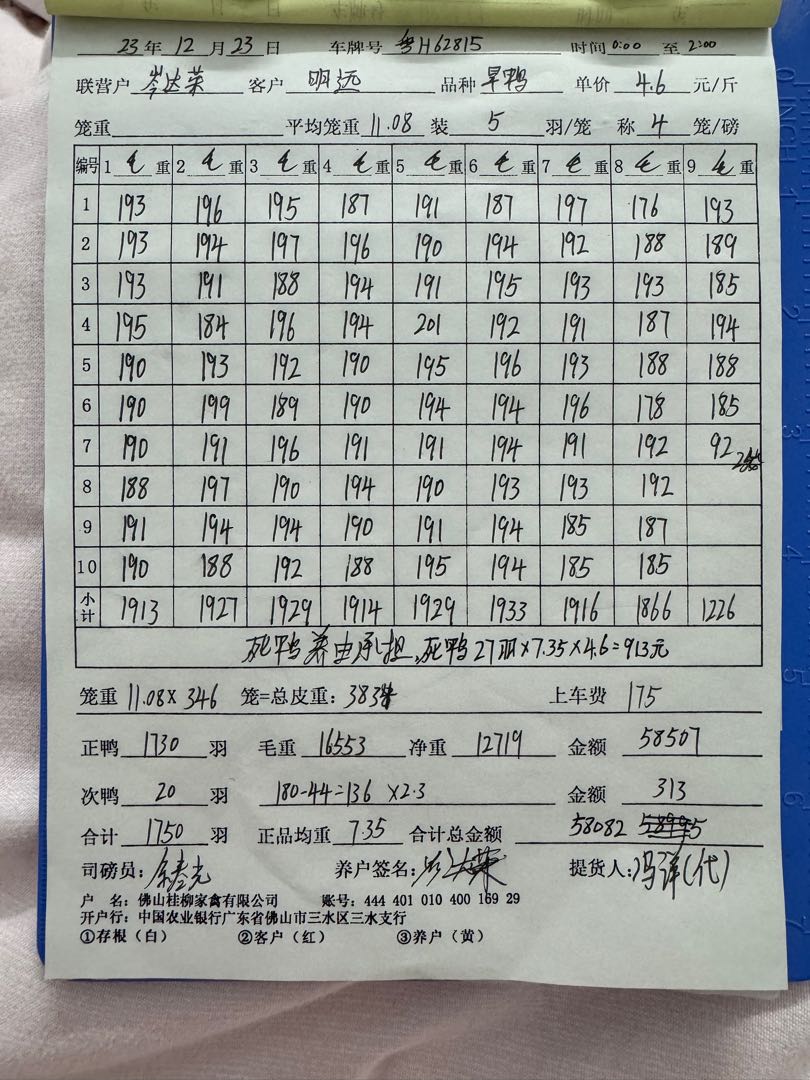 23年12月23日 车牌号 粤H62815 时间0:00至2:00
联营户 岑达荣 客户 明远 品种 旱鸭 单价 4.6 元/斤
笼重 平均笼重 11.08 装 5 羽/笼 称 4 笼/磅
编号 1 毛 重 2 毛 重 3 毛 重 4 毛 重 5 毛 重 6 毛 重 7 毛 重 8 毛 重 9 毛 重
1 193 196 195 187 191 187 197 176 193
2 193 194 197 196 190 194 192 188 189
3 193 191 188 194 191 195 193 193 185
4 195 184 196 194 201 192 191 187 194
5 190 193 192 190 195 196 193 188 188
6 190 199 189 190 194 194 196 178 185
7 190 191 196 191 191 194 191 192 92
8 188 197 190 194 190 193 193 192
9 191 194 194 190 191 194 185 187
10 190 188 192 188 195 194 185 185
小计 1913 1927 1929 1914 1929 1933 1916 1866 1226
死鸭养由承担、死鸭27羽×7.35×4.6=913元
笼重 11.08× 346 笼=总皮重: 3834 上车费 175
正鸭 1730 羽 毛重 16553 净重 12719 金额 58507
次鸭 20 羽 180-44=136 ×2.3 金额 313
合计 1750 羽 正品均重 7.35 合计总金额 58082
司磅员: 养户签名: 提货人: (代)
户 名: 佛山桂柳家禽有限公司 账号: 444 401 010 400 169 29
开户行: 中国农业银行广东省佛山市三水区三水支行
①存根(白) ②客户(红) ③养户(黄)